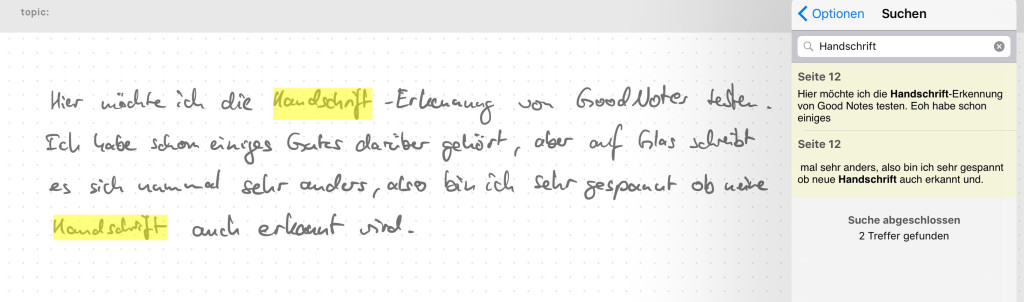 topic:
Hier möchte ich die Handschrift-Erkennung von GoodNotes testen.
Ich habe schon einiges Gutes darüber gehört, aber auf Glas schreibt
es sich nunmal sehr anders, also bin ich sehr gespannt ob meine
Handschrift auch erkannt wird.
Optionen Suchen
Handschrift
Seite 12
Hier möchte ich die Handschrift-Erkennung
von Good Notes testen. Eoh habe schon
einiges
Seite 12
mal sehr anders, also bin ich sehr gespannt
ob neue Handschrift auch erkannt und.
Suche abgeschlossen
2 Treffer gefunden